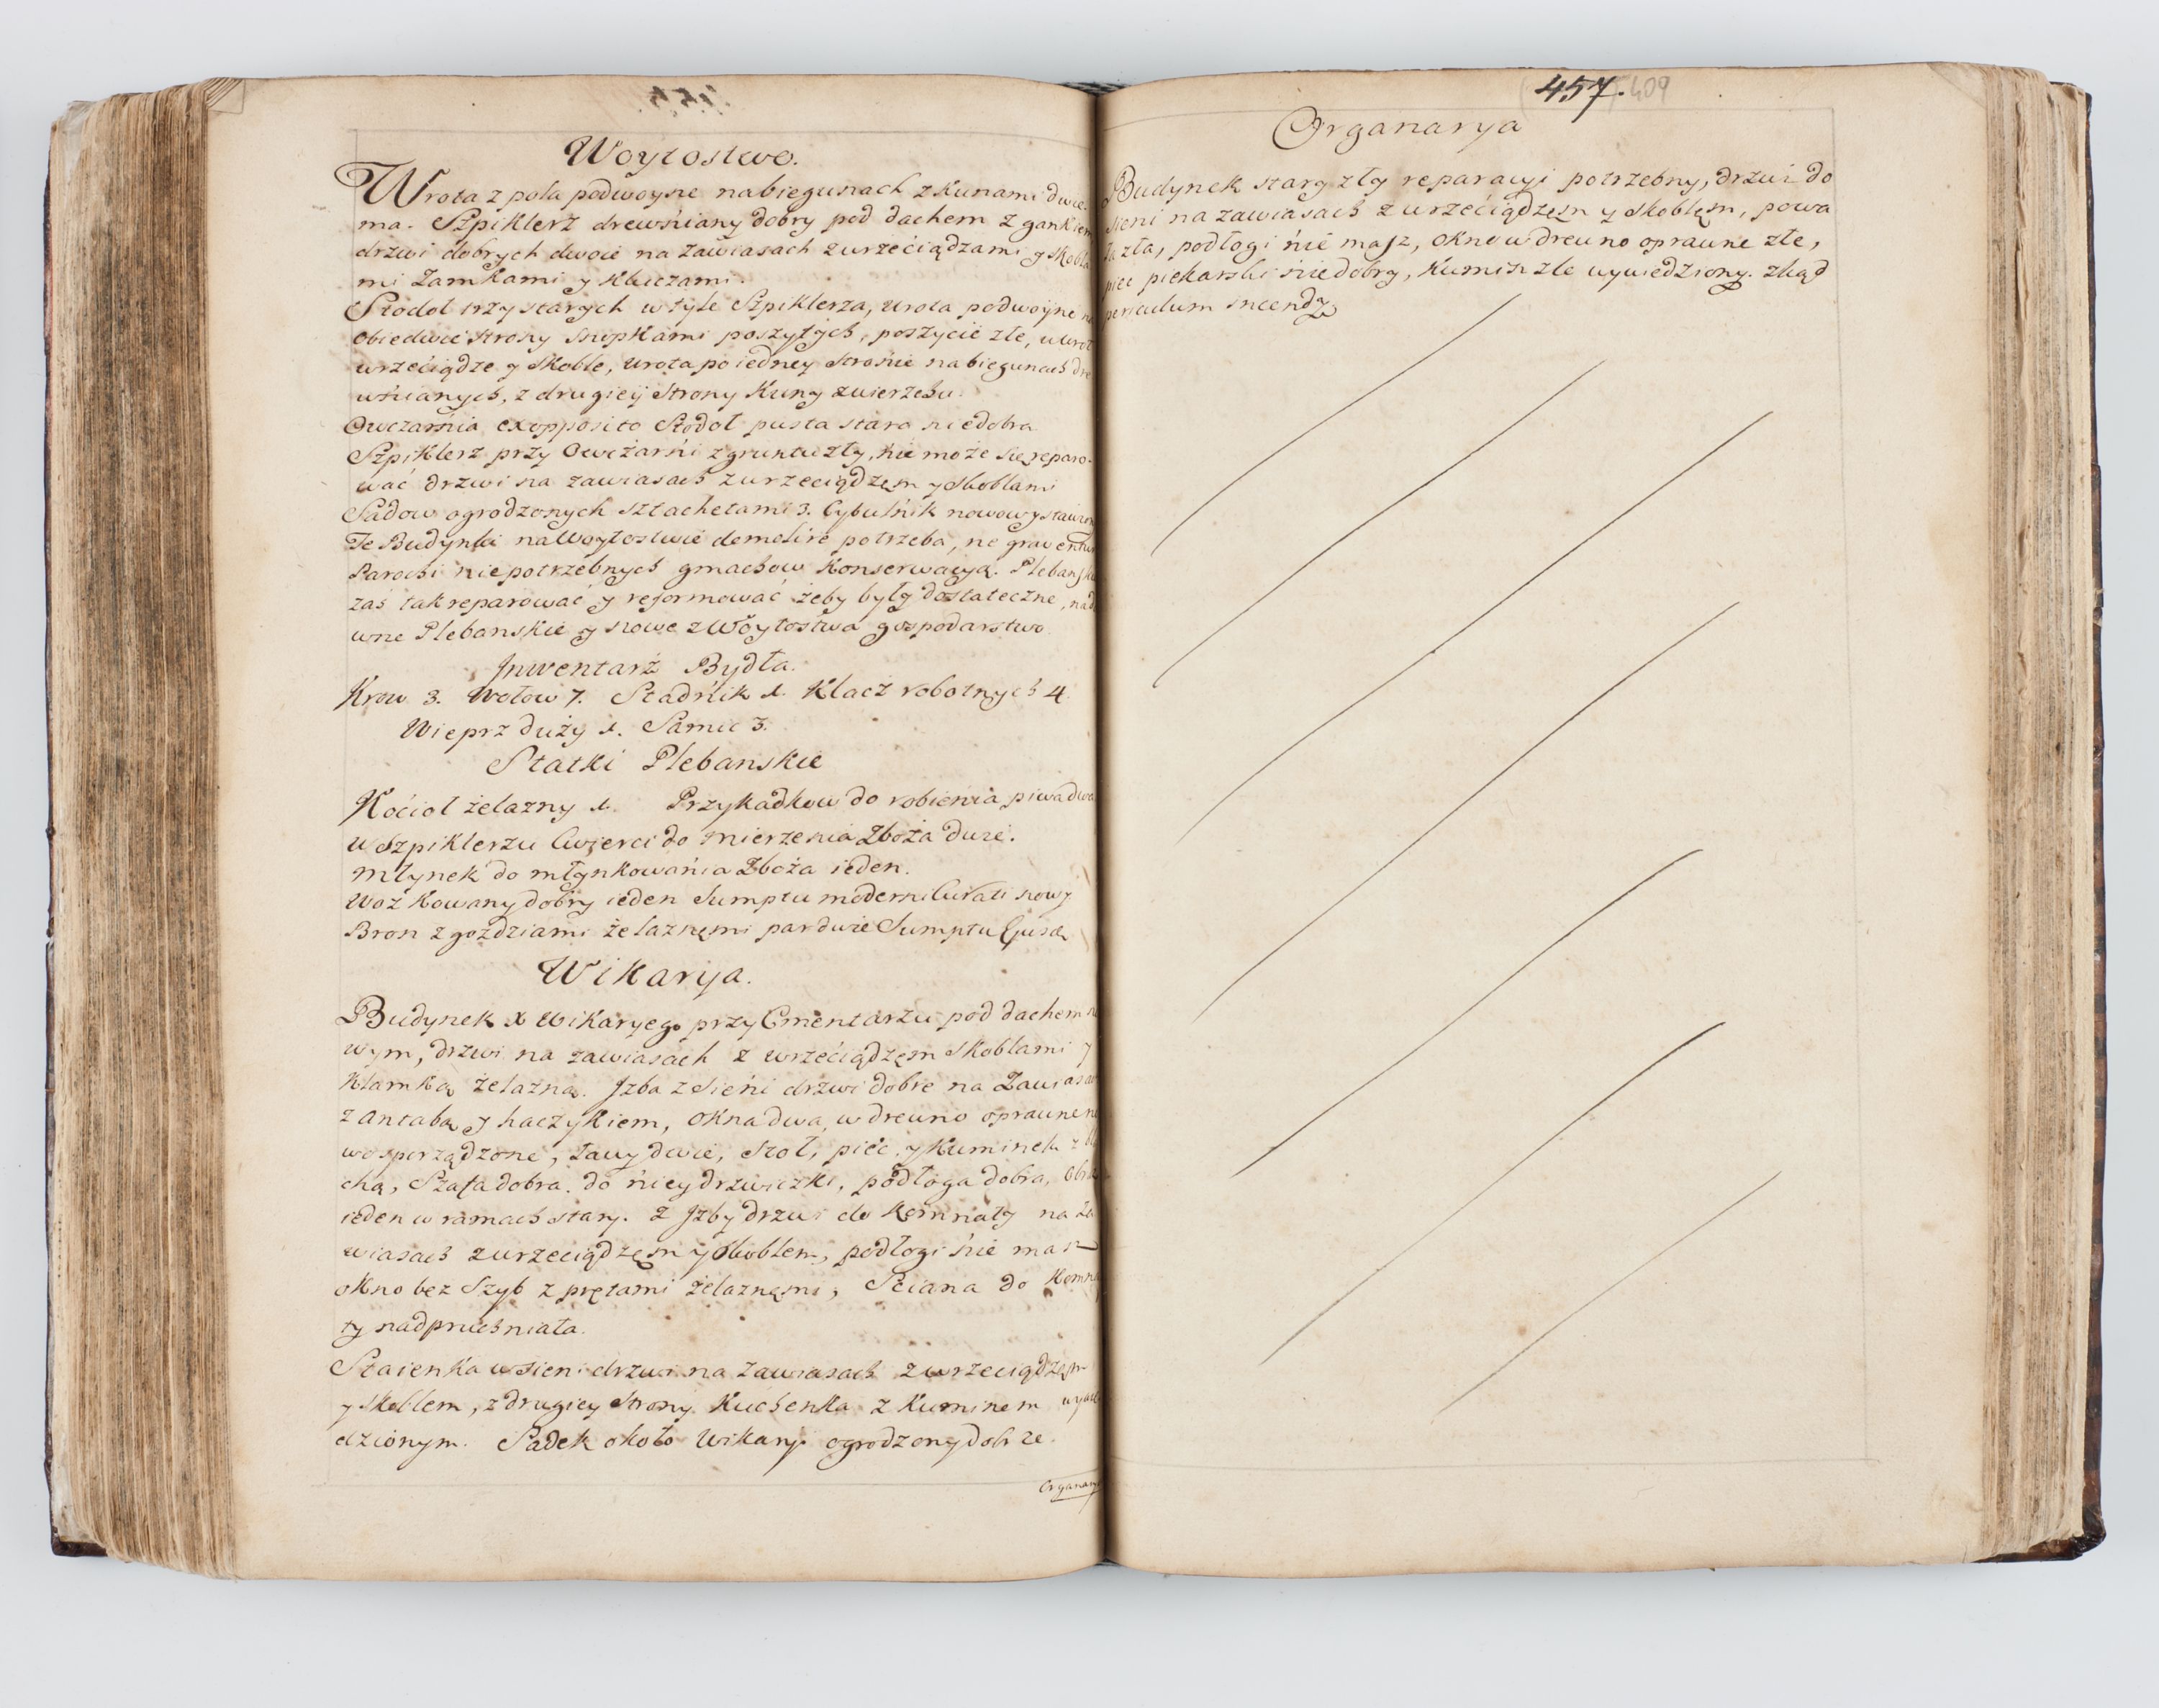 Woytostwo.
Wrota z pola podwoyne na biegunach z Kunami dwie-
ma. Szpiklerz drewniany dobry pod dachem z gankiem
drzwi dobrych dwoie na zawiasach z wrzeciądzami y skobla
mi Zamkami y Kluczami.
Stodoł trzy starych w tyle Szpiklerza, wrota podwoyne na
obiedwie strony snipkami poszytych, poszycie złe, u wrot
wrzeciądze y skoble, wrota po iedney stronie na biegunach dre
wnianych, z drugiey strony Kuny zwierzchu.
Owczarnia exopposito Stodoł pusta stara niedobra
Szpiklerz przy Owczarni z gruntu zły, nie może się reparo-
wać drzwi na zawiasach z wrzeciądzem y skoblami
Sadow ogrodzonych sztachetami 3. Cybulnik nowo wystawion
Te Budynki na Woytostwie demolire potrzeba, ne graventur
Parochi niepotrzebnych gmachow Konserwacyą. Plebanskie
zaś tak reparować y reformować żeby były dostateczne, na da
wne Plebanskie y nowe z Woytostwa gospodarstwo
Inwentarz Bydła.
Krow 3. Wołow 7. Stadnik 1. Klacz robotnych 4
Wieprz duży 1. Samic 3.
Statki Plebanskie
Kocioł żelazny 1. Przykadkow do robienia piwa dwa
w Szpiklerzu Cwierci do mierzenia Zboża dwie.
Młynek do młynkowania Zboża ieden.
Woz Kowany dobry ieden Sumptu moderni Curati nowy
Bron z goździami żelaznemi par dwie Sumptu Ejusd
Wikarya.
Budynek X Wikaryego przy Cmentarzu pod dachem no
wym, drzwi na zawiasach z wrzeciądzem skoblami y
Klamką żelazną. Izba z Sieni drzwi dobre na Zawiasach
z antabą y haczykiem, okna dwa w drewno oprawne no
wo sporządzone, ławy dwie, stoł, piec, y Kuminek z bla
chą, Szafa dobra, do niey drzwiczki, podłoga dobra, Obraz
ieden w ramach stary. Z Izby drzwi do Komnaty na za
wiasach z wrzeciądzem y skoblem, podłogi nie masz
okno bez Szyb z prętami żelaznemi, Sciana do Komna
ty nadpruchniała.
Staienka w sieni drzwi na zawiasach z wrzeciądzem
y skoblem, z drugiey strony Kuchenka z Kuminem wywie
dzionym. Sadek około Wikaryi ogrodzony dobrze.
Organarya
457. 409
Organarya
Budynek stary zły reparacyi potrzebny, drzwi do
sieni na zawiasach z wrzeciądzem y skoblem, powa
ła zła, podłogi nie masz, okno w drewno oprawne złe,
piec piekarski niedobry, Kumin zle wywiedziony. zkąd
periculum incendy